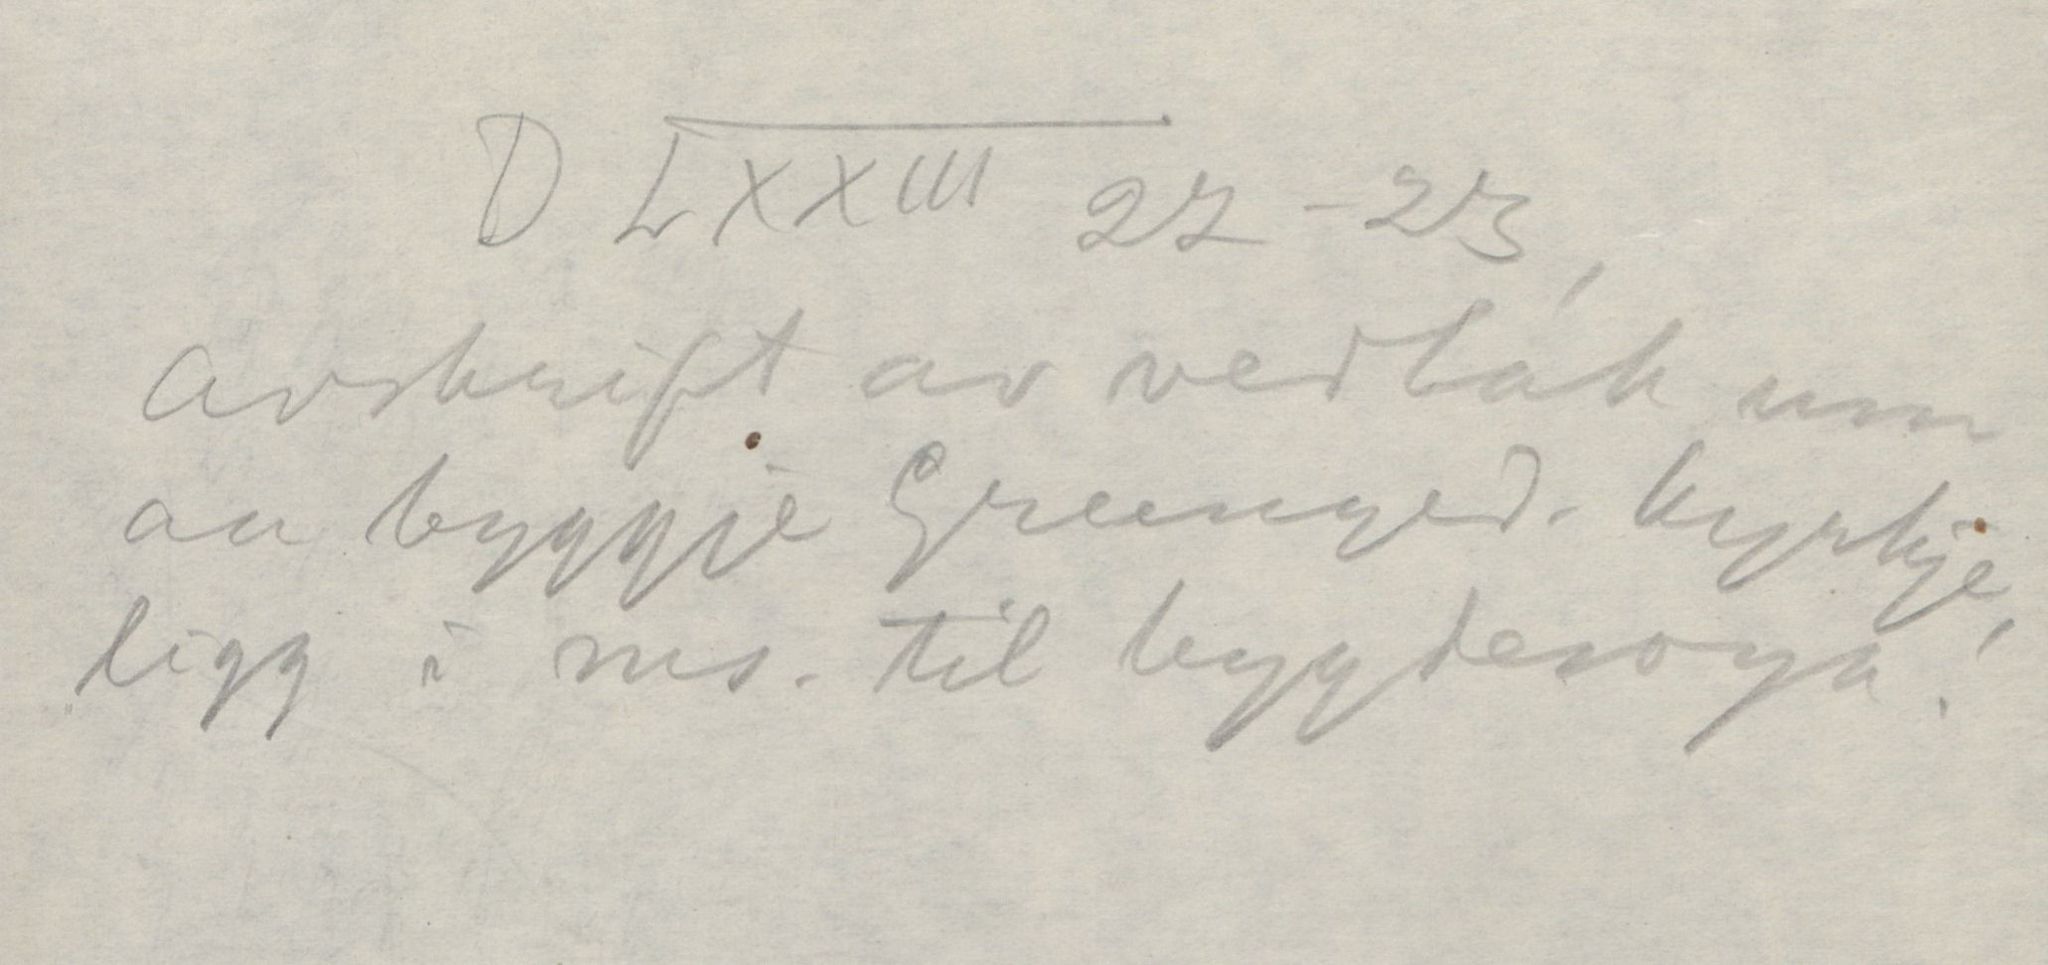 D LXXIII 22-23,
avskrift av vedtak um
aa byggje Greenyed. kyrkje,
ligg i ms. til bygdesoga.